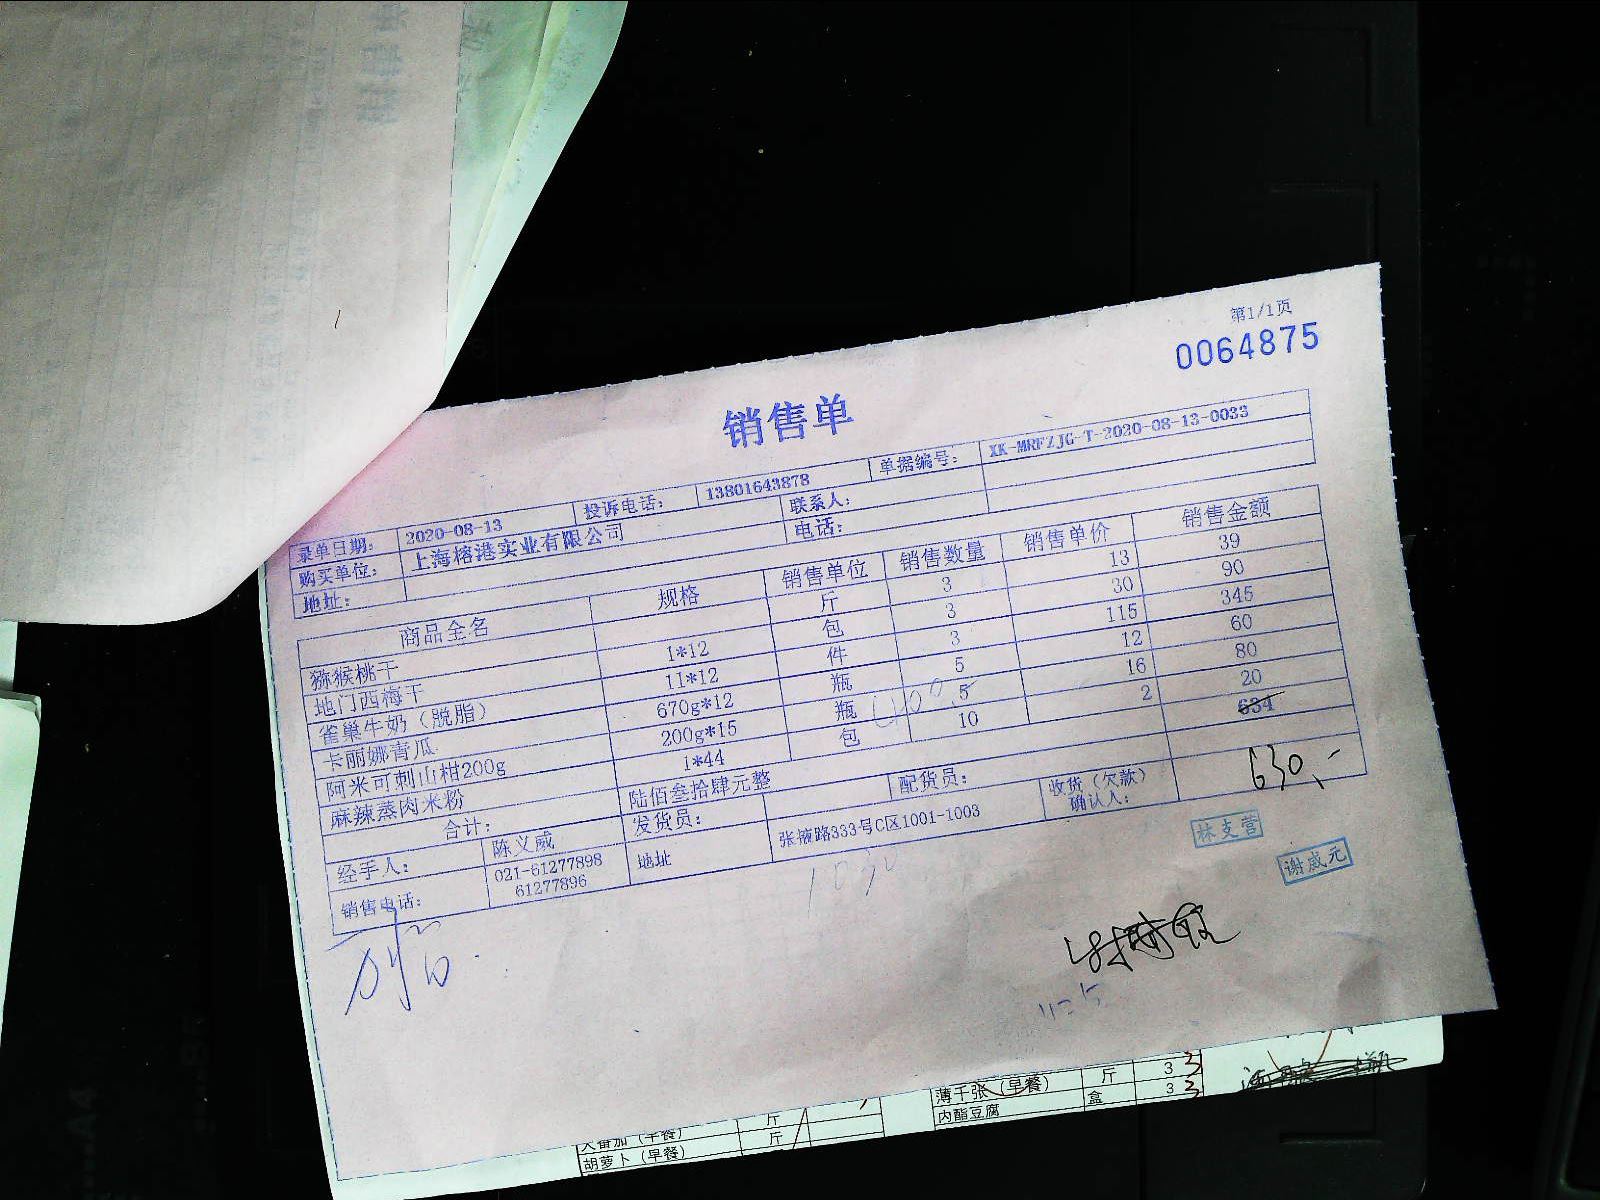 第1/1页
0064875
销售单
录单日期: 2020-08-13 投诉电话: 13801643878 单据编号: XK-MRFZJG-T-2020-08-13-0033
购买单位: 上海榕港实业有限公司 联系人:
地址: 电话:
商品全名 规格 销售单位 销售数量 销售单价 销售金额
猕猴桃干 斤 3 13 39
地门西梅干 1*12 包 3 30 90
雀巢牛奶（脱脂） 11*12 件 3 115 345
卡丽娜青瓜 670g*12 瓶 5 12 60
阿米可刺山柑200g 200g*15 瓶 5 16 80
麻辣蒸肉米粉 1*44 包 10 2 20
合计: 陆佰叁拾肆元整 634
630,-
经手人: 陈义威 发货员: 配货员: 收货（欠款）确认人:
销售电话: 021-61277898 61277896 地址 张掖路333号C区1001-1003
林支营
谢威元
薄千张（早餐） 斤 3 3
内酯豆腐 盒 3 3
大番茄（早餐） 斤
胡萝卜（早餐） 斤